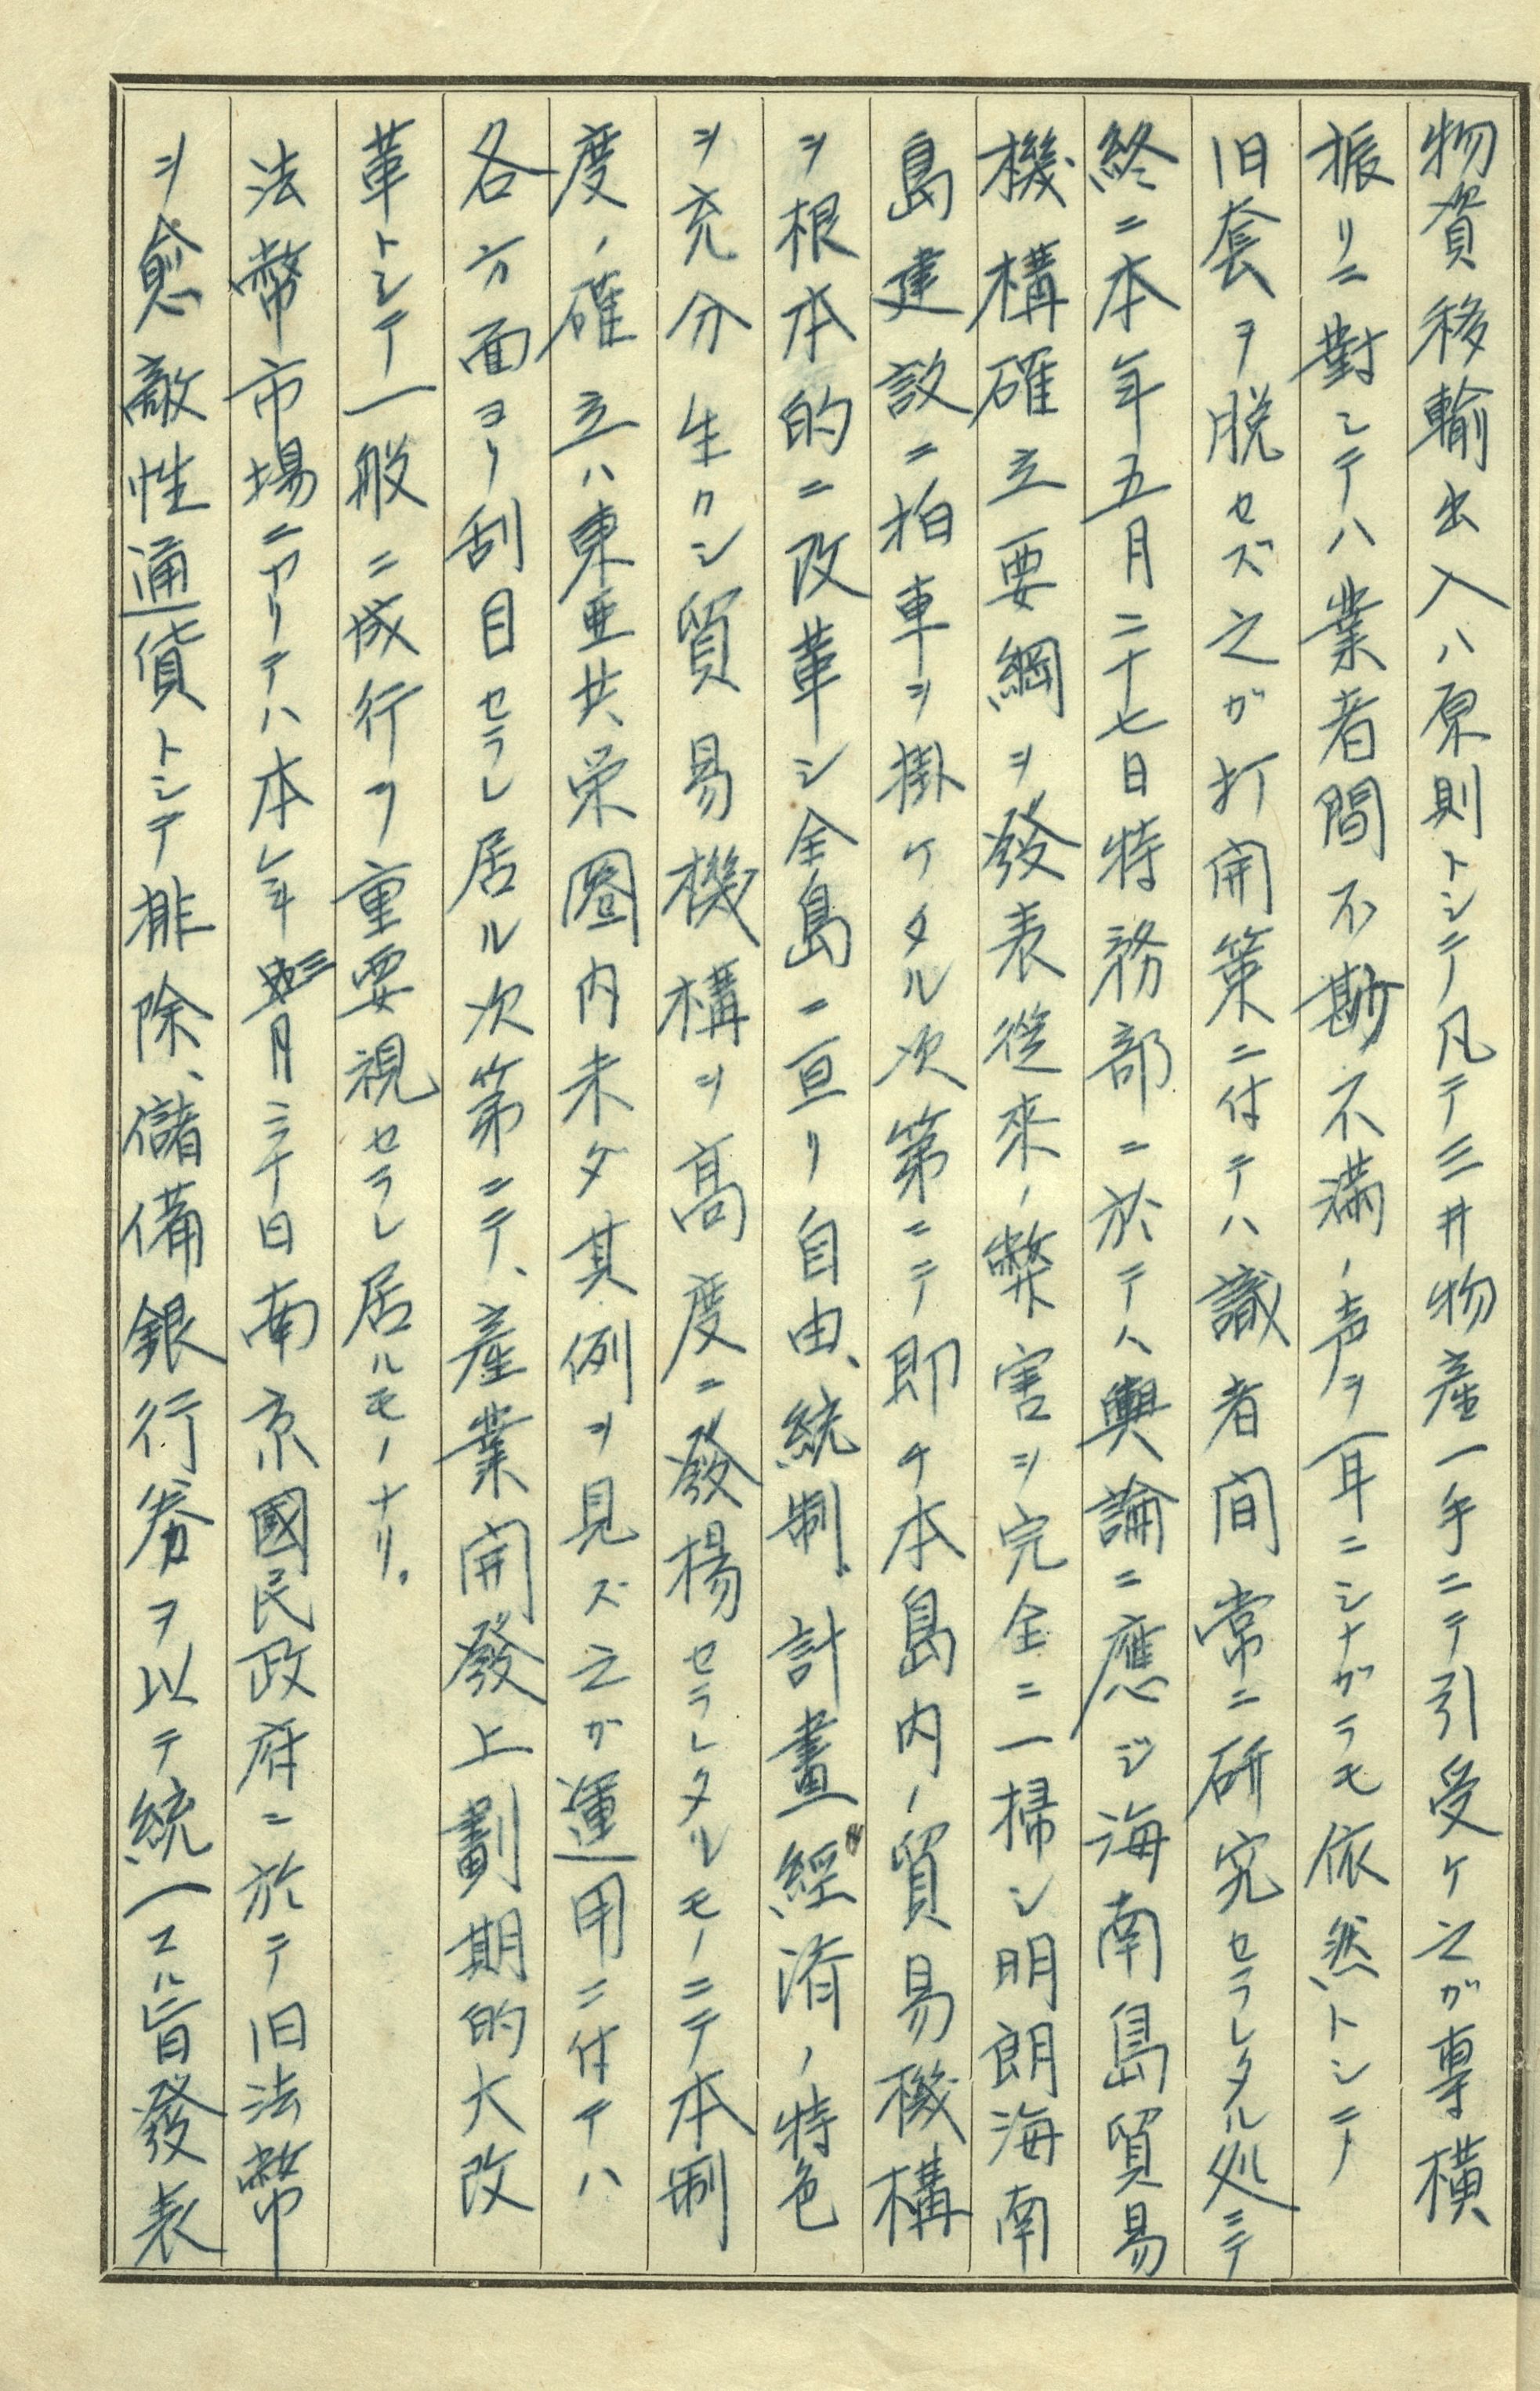 物資移輸出入ハ原則トシテ凡テ三井物産一手ニテ引受ケ之ガ専横
振リニ對シテハ業者間不尠不満ノ声ヲ耳ニシナガラモ依然トシテ
旧套ヲ脱セズ之ガ打開策ニ付テハ識者間常ニ研究セラレタル処ニテ
終ニ本年五月二十七日特務部ニ於テハ輿論ニ應ジ海南島貿易
機構確立要綱ヲ發表従來ノ弊害ヲ完全ニ一掃シ明朗海南
島建設ニ拍車ヲ掛ケタル次第ニテ即チ本島内ノ貿易機構
ヲ根本的ニ改革シ全島ニ亘リ自由、統制、計畫経済ノ特色
ヲ充分生カシ貿易機構ヲ高度ニ發揚セラレタルモノニテ本制
度ノ確立ハ東亜共栄圏内未ダ其例ヲ見ズ之ガ運用ニ付テハ
各方面ヨリ刮目セラレ居ル次第ニテ、産業開發上劃期的大改
革トシテ一般ニ成行ヲ重要視セラレ居ルモノナリ。
法幣市場ニアリテハ本年三月三十日南京國民政府ニ於テ旧法幣
ヲ愈敵性通貨トシテ排除、儲備銀行券ヲ以テ統一スル旨發表